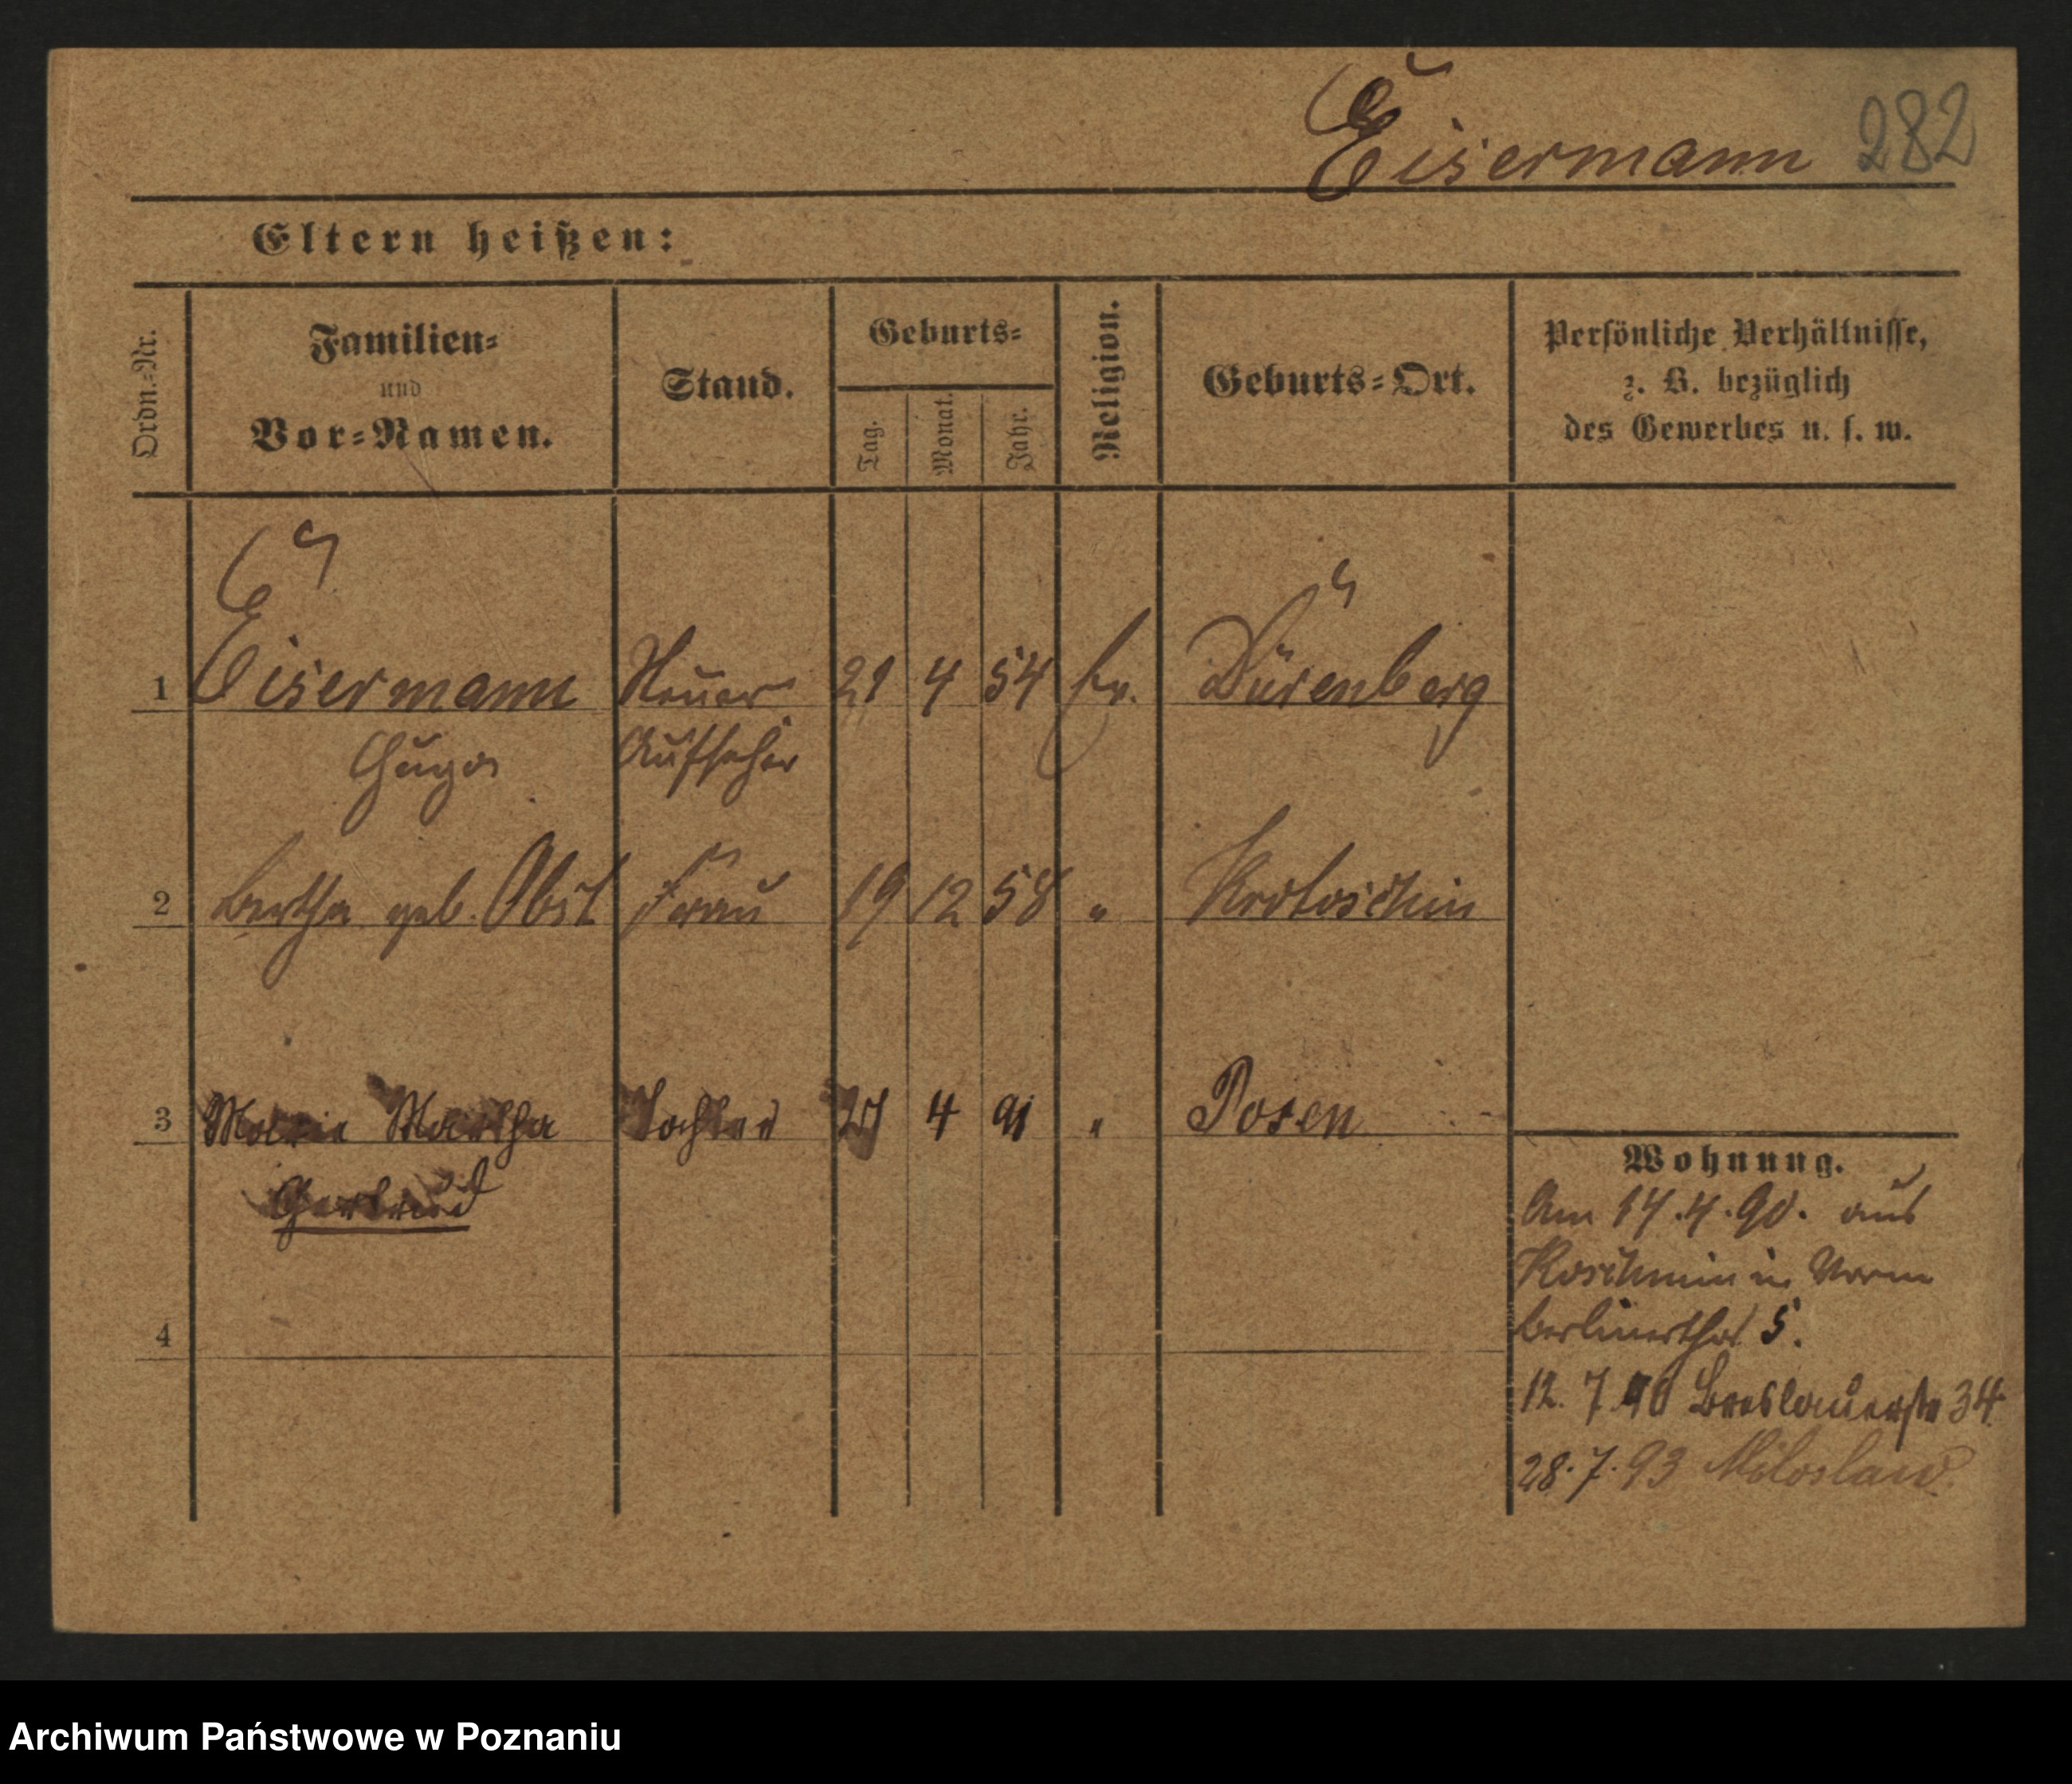 Eisermann 282
Eltern heißen:
Ordn.-Nr.
Familien-
und
Vor-Namen.
Stand.
Geburts-
Tag.
Monat.
Jahr.
Religion.
Geburts-Ort.
Persönliche Verhältnisse,
z. B. bezüglich
des Gewerbes u. s. w.
1 Eisermann Steuer 21 4 54 Ev. Dürenberg
Hugo Aufseher
2 Bertha geb. Obst Frau 19 12 58 " Krotoschin
3 Marie Martha Tochter 4 91 " Posen
Gertrud
4
Wohnung.
Am 14.4.90. aus
Koschmin in
Berlinerthor 5.
12. 7. 90 Breslauerstr 34
28.7.93 Miloslaw.
Archiwum Państwowe w Poznaniu